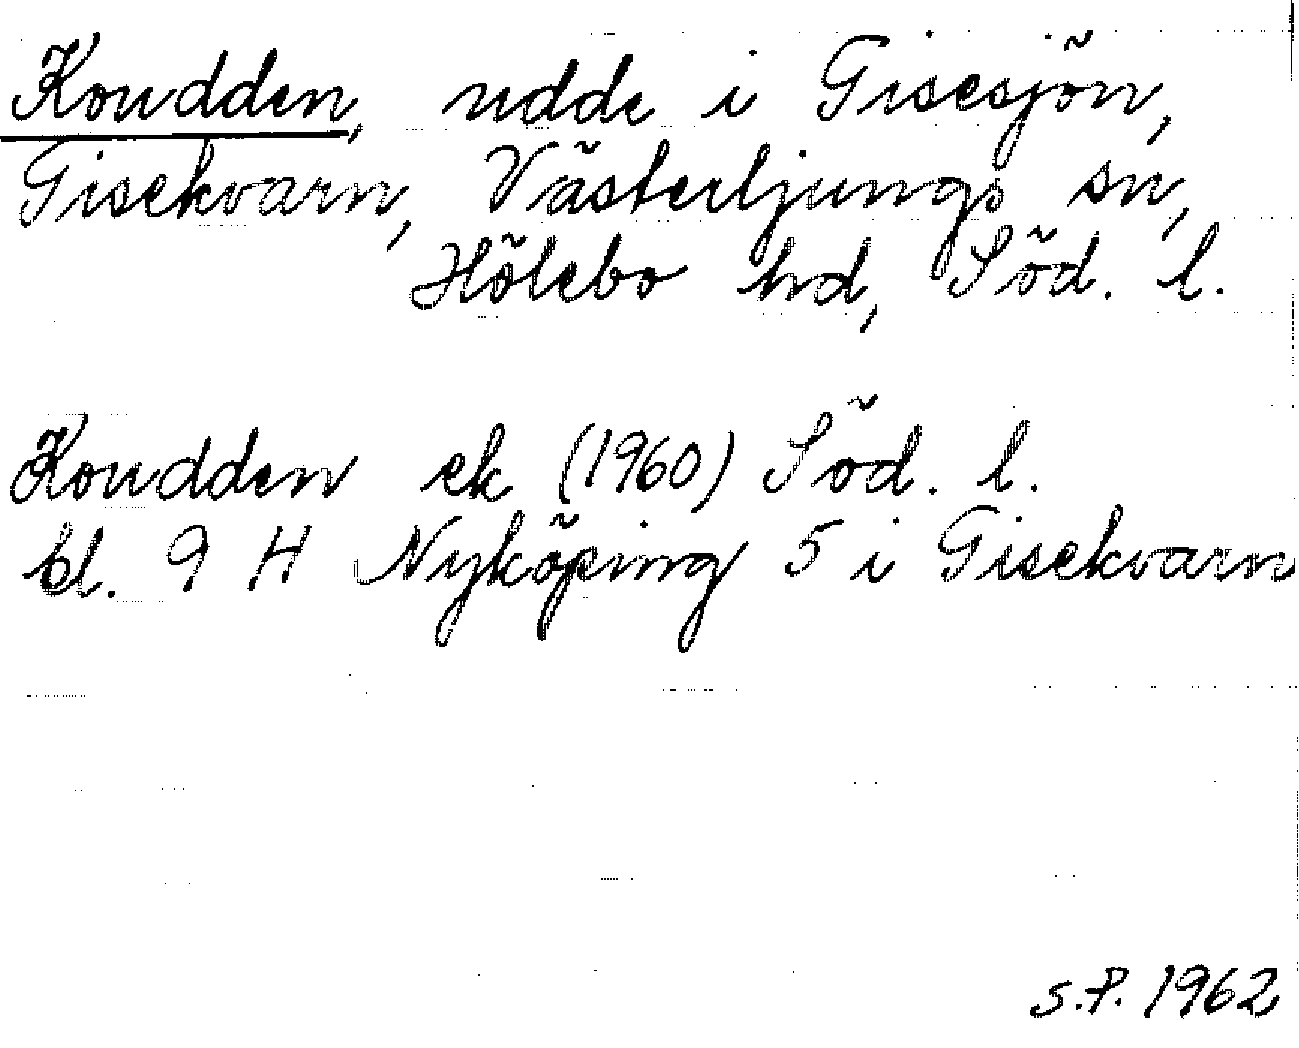 Koudden, udde i Gisesjön,
Gisekvarn, Västerljungs sn,
Hölebo hd, Söd. l.
Koudden ek (1960) Söd. l.
bl. 9 H Nyköping 5 i Gisekvarn
S.P. 1962